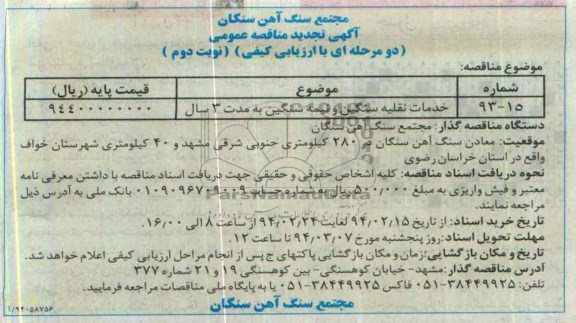 مجتمع سنگ آهن سنگان
آگهی تجدید مناقصه عمومی
(دو مرحله ای با ارزیابی کیفی) (نوبت دوم)
موضوع مناقصه:
شماره موضوع قیمت پایه (ریال)
۹۳-۱۵ خدمات نقلیه سنگین و نیمه سنگین به مدت ۳ سال ۹۴۴۰۰۰۰۰۰۰۰۰
دستگاه مناقصه گذار: مجتمع سنگ آهن سنگان
موقعیت: معادن سنگ آهن سنگان در ۲۸۰ کیلومتری جنوبی شرقی مشهد و ۴۰ کیلومتری شهرستان خواف
واقع در استان خراسان رضوی
نحوه دریافت اسناد مناقصه: کلیه اشخاص حقوقی و حقیقی جهت دریافت اسناد مناقصه با داشتن معرفی نامه
معتبر و فیش واریزی به مبلغ ۵۰۰/۰۰۰ ریال به شماره حساب بانک ملی به آدرس ذیل
مراجعه نمایند.
تاریخ خرید اسناد: از تاریخ ۹۴/۰۲/۱۵ لغایت ۹۴/۰۲/۲۴ از ساعت ۸ الی ۱۶/۰۰
مهلت تحویل اسناد: روز پنجشنبه مورخ ۹۴/۰۳/۰۷ تا ساعت ۱۲.
تاریخ و مکان بازگشایی: زمان و مکان بازگشایی پاکتهای ج پس از انجام مراحل ارزیابی کیفی اعلام خواهد شد.
آدرس مناقصه گذار: مشهد- خیابان کوهسنگی- بین کوهسنگی ۱۹ و ۲۱ شماره ۳۷۷
تلفن: ۳۸۴۴۹۹۲۵-۰۵۱ فاکس ۳۸۴۴۹۹۲۵-۰۵۱ یا به پایگاه ملی مناقصات مراجعه فرمایید.
مجتمع سنگ آهن سنگان
۹۴۰۵۸۷۵۶/آ